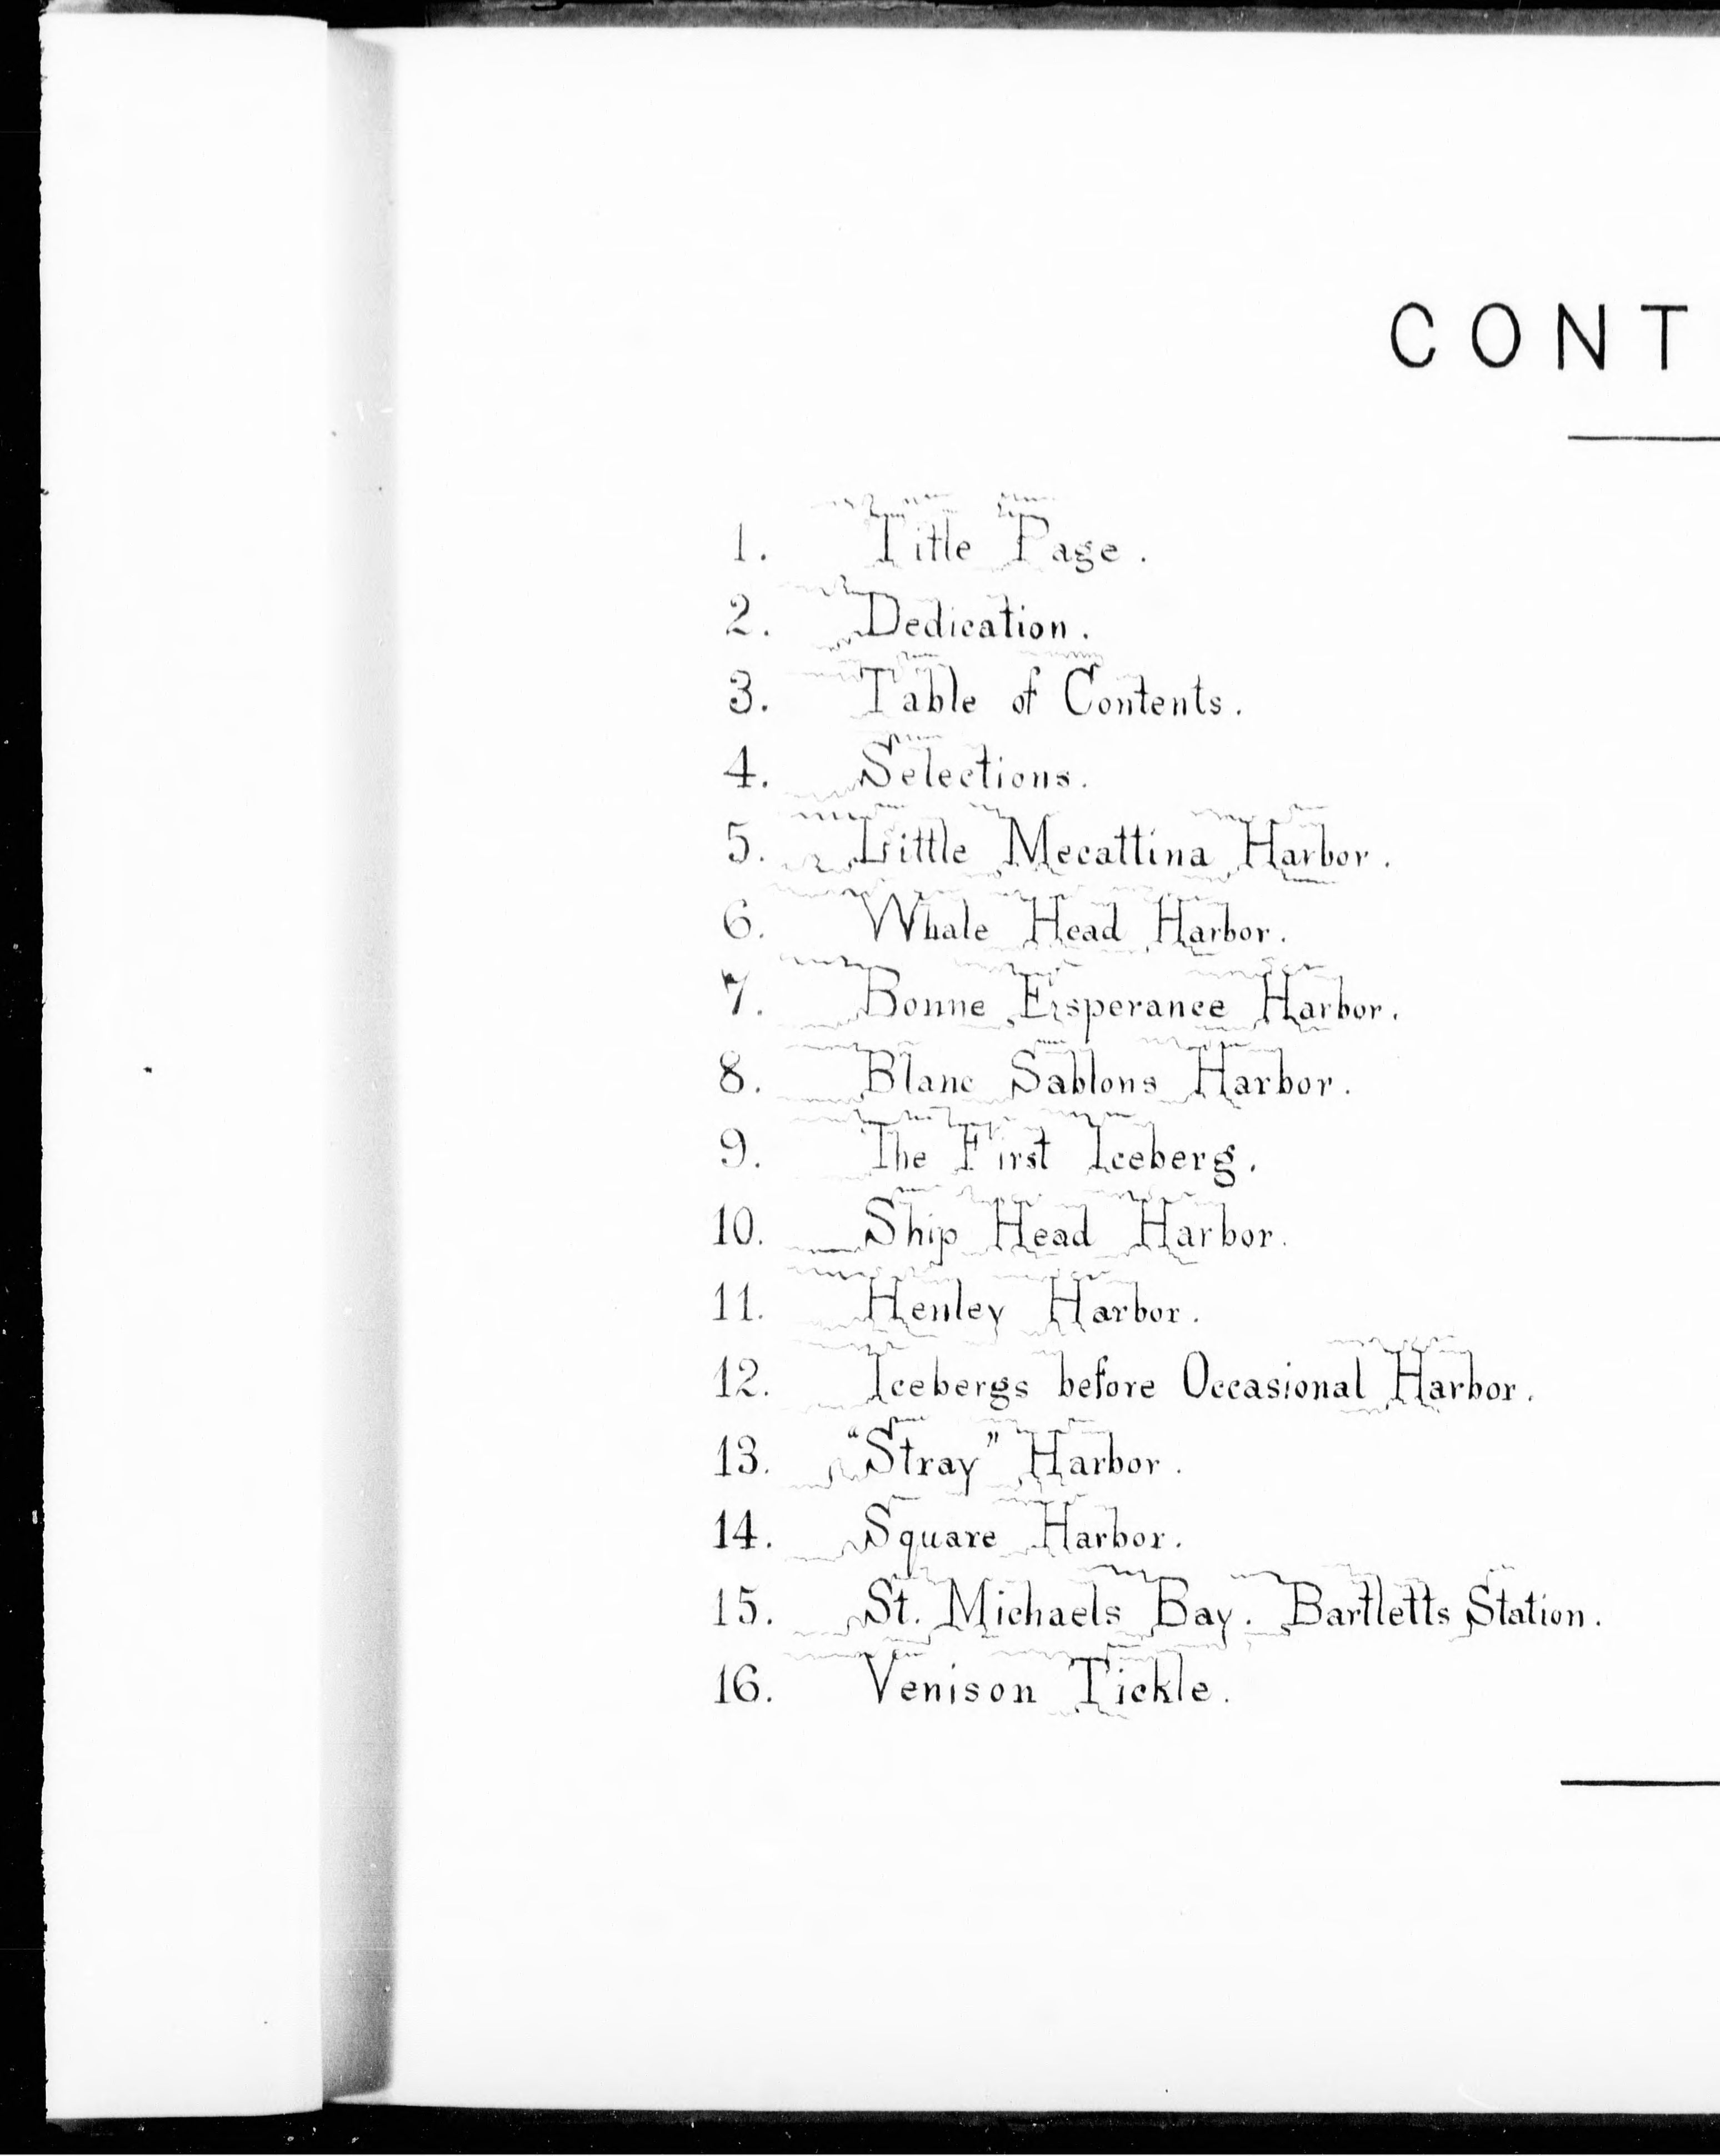 CONT
1. Title Page.
2. Dedication.
3. Table of Contents.
4. Selections.
5. Little Mecattina Harbor.
6. Whale Head Harbor.
7. Bonne Esperance Harbor.
8. Blanc Sablons Harbor.
9. The First Iceberg.
10. Ship Head Harbor.
11. Henley Harbor.
12. Icebergs before Occasional Harbor.
13. "Stray" Harbor.
14. Square Harbor.
15. St. Michaels Bay. Bartletts Station.
16. Venison Tickle.